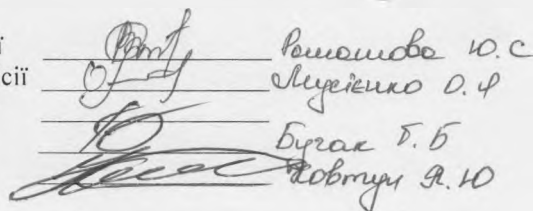 ї
сії
Ромашова Ю.С
Мусієнко О.Ф
Бугак Т.Б
Ковтун Я.Ю